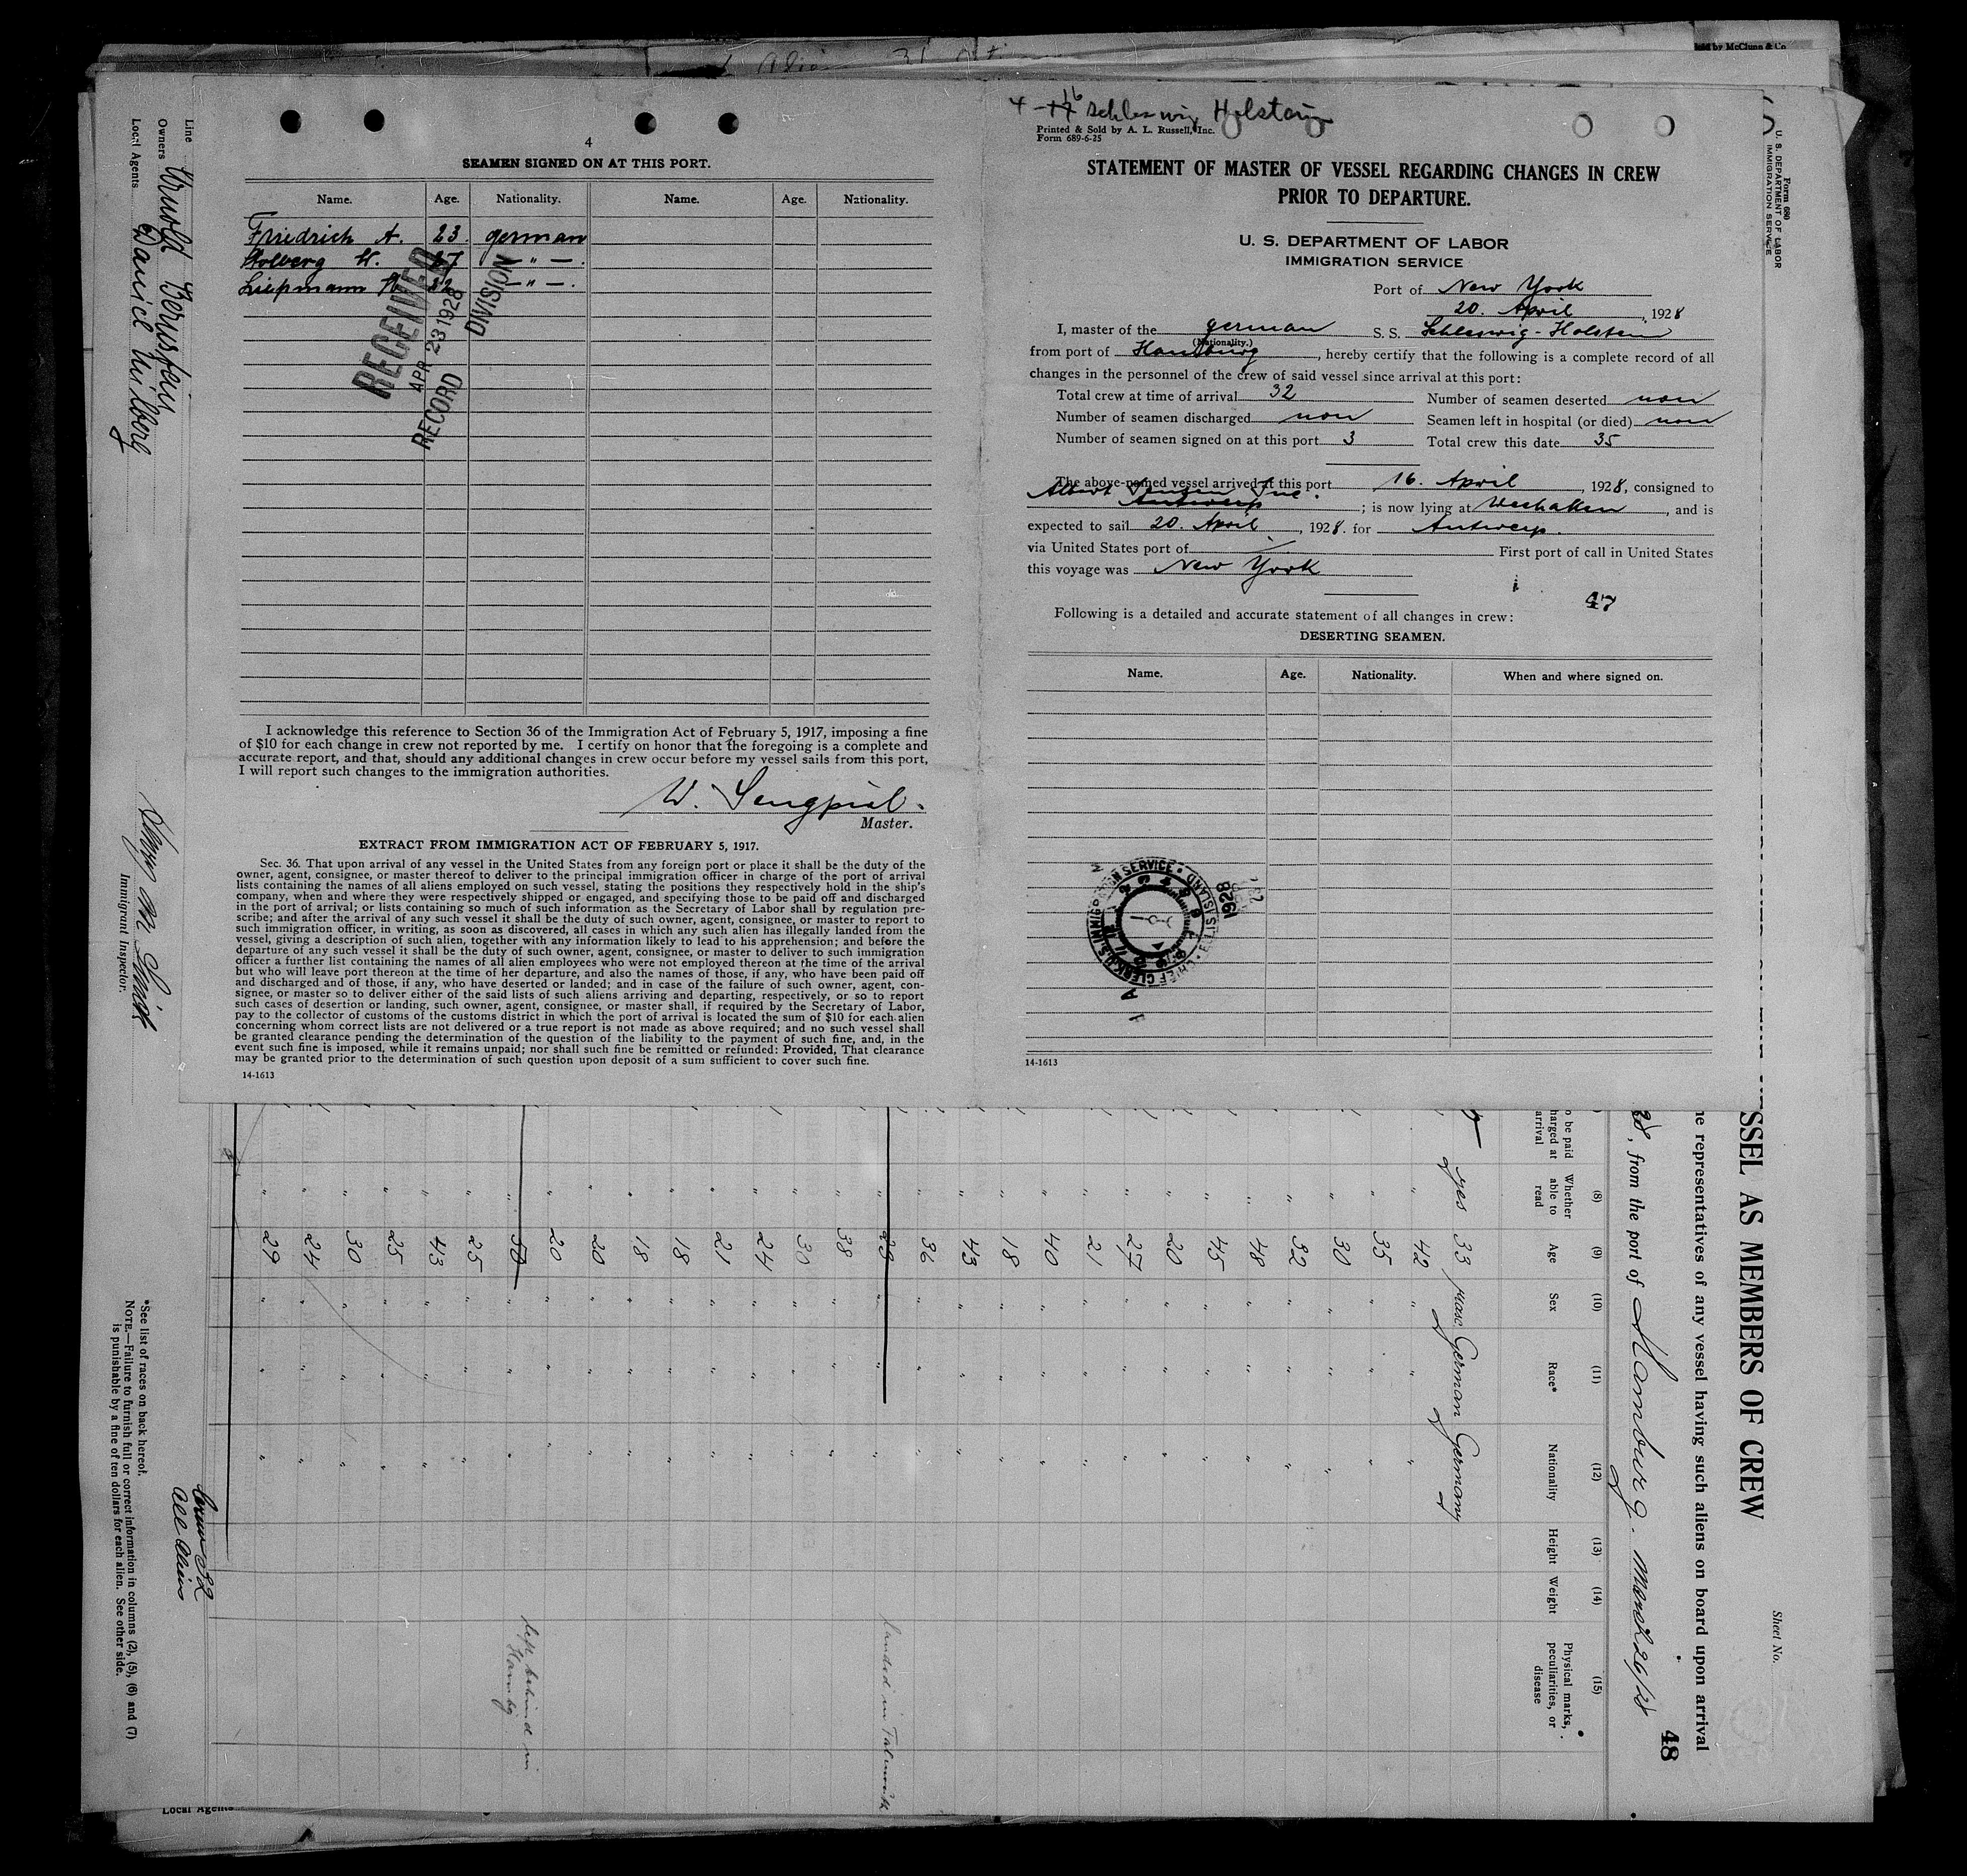 4
SEAMEN SIGNED ON AT THIS PORT.
Name. Age. Nationality. Name. Age. Nationality.
Friedrich A. 23. german
Stolberg W. 27 — " —.
Liepmann 32 — " —.
RECEIVED
APR 23 1928
RECORD DIVISION
I acknowledge this reference to Section 36 of the Immigration Act of February 5, 1917, imposing a fine
of $10 for each change in crew not reported by me. I certify on honor that the foregoing is a complete and
accurate report, and that, should any additional changes in crew occur before my vessel sails from this port,
I will report such changes to the immigration authorities.
W. Sengpiel.
Master.
EXTRACT FROM IMMIGRATION ACT OF FEBRUARY 5, 1917.
Sec. 36. That upon arrival of any vessel in the United States from any foreign port or place it shall be the duty of the
owner, agent, consignee, or master thereof to deliver to the principal immigration officer in charge of the port of arrival
lists containing the names of all aliens employed on such vessel, stating the positions they respectively hold in the ship's
company, when and where they were respectively shipped or engaged, and specifying those to be paid off and discharged
in the port of arrival; or lists containing so much of such information as the Secretary of Labor shall by regulation pre-
scribe; and after the arrival of any such vessel it shall be the duty of such owner, agent, consignee, or master to report to
such immigration officer, in writing, as soon as discovered, all cases in which any such alien has illegally landed from the
vessel, giving a description of such alien, together with any information likely to lead to his apprehension; and before the
departure of any such vessel it shall be the duty of such owner, agent, consignee, or master to deliver to such immigration
officer a further list containing the names of all alien employees who were not employed thereon at the time of the arrival
but who will leave port thereon at the time of her departure, and also the names of those, if any, who have been paid off
and discharged and of those, if any, who have deserted or landed; and in case of the failure of such owner, agent, con-
signee, or master so to deliver either of the said lists of such aliens arriving and departing, respectively, or so to report
such cases of desertion or landing, such owner, agent, consignee, or master shall, if required by the Secretary of Labor,
pay to the collector of customs of the customs district in which the port of arrival is located the sum of $10 for each alien
concerning whom correct lists are not delivered or a true report is not made as above required; and no such vessel shall
be granted clearance pending the determination of the question of the liability to the payment of such fine, and, in the
event such fine is imposed, while it remains unpaid; nor shall such fine be remitted or refunded: Provided, That clearance
may be granted prior to the determination of such question upon deposit of a sum sufficient to cover such fine.
14-1613
4-17 16 Schleswig Holstein
Printed & Sold by A. L. Russell, Inc.
Form 689-6-25
STATEMENT OF MASTER OF VESSEL REGARDING CHANGES IN CREW
PRIOR TO DEPARTURE.
U. S. DEPARTMENT OF LABOR
IMMIGRATION SERVICE
Port of New York
20. April, 1928
I, master of the german S. S. Schleswig-Holstein
(Nationality.)
from port of Hamburg, hereby certify that the following is a complete record of all
changes in the personnel of the crew of said vessel since arrival at this port:
Total crew at time of arrival 32 Number of seamen deserted non
Number of seamen discharged non Seamen left in hospital (or died) non
Number of seamen signed on at this port 3 Total crew this date 35
The above-named vessel arrived at this port 16. April, 1928, consigned to
Albert Inc.
Antwerp; is now lying at Weehaken, and is
expected to sail 20. April, 1928. for Antwerp.
via United States port of / First port of call in United States
this voyage was New York
47
Following is a detailed and accurate statement of all changes in crew:
DESERTING SEAMEN.
Name. Age. Nationality. When and where signed on.
CHIEF CLERK U.S. IMMIGRATION SERVICE ELLIS ISLAND
1928
14-1613
Form 680
U. S. DEPARTMENT OF LABOR
IMMIGRATION SERVICE
Sheet No.
SSEL AS MEMBERS OF CREW
ne representatives of any vessel having such aliens on board upon arrival
48
28, from the port of Hamburg. March 26/28
(8) (9) (10) (11) (12) (13) (14) (15)
o be paid
harged at
arrival
Whether
able to
read
Age Sex Race* Nationality Height Weight
Physical marks,
peculiarities, or
disease
yes 33 masc German Germany
" 42 " " "
" 35 " " "
" 30 " " "
" 32 " " "
" 48 " " "
" 45 " " "
" 20 " " "
" 27 " " "
" 21 " " "
" 40 " " "
" 18 " " "
" 43 " " "
" 36 " " "
" 23 " " " landed in Falmouth
" 38 " " "
" 30 " " "
" 24 " " "
" 21 " " "
" 18 " " "
" 18 " " "
" 20 " " "
" 20 " " "
" 50 " " " left behind in
Hambg
" 25 " " "
" 43 " " "
" 25 " " "
" 30 " " "
" 24 " " "
" 29 " " "
Crew 32
all aliens
*See list of races on back hereof.
NOTE.—Failure to furnish full or correct information in columns (2), (5), (6) and (7)
is punishable by a fine of ten dollars for each alien. See other side.
Line
Owners Arnold Bernstein
Local Agents Daniel Milberg
Immigrant Inspector.
Local Agents
Sold by McClung & Co